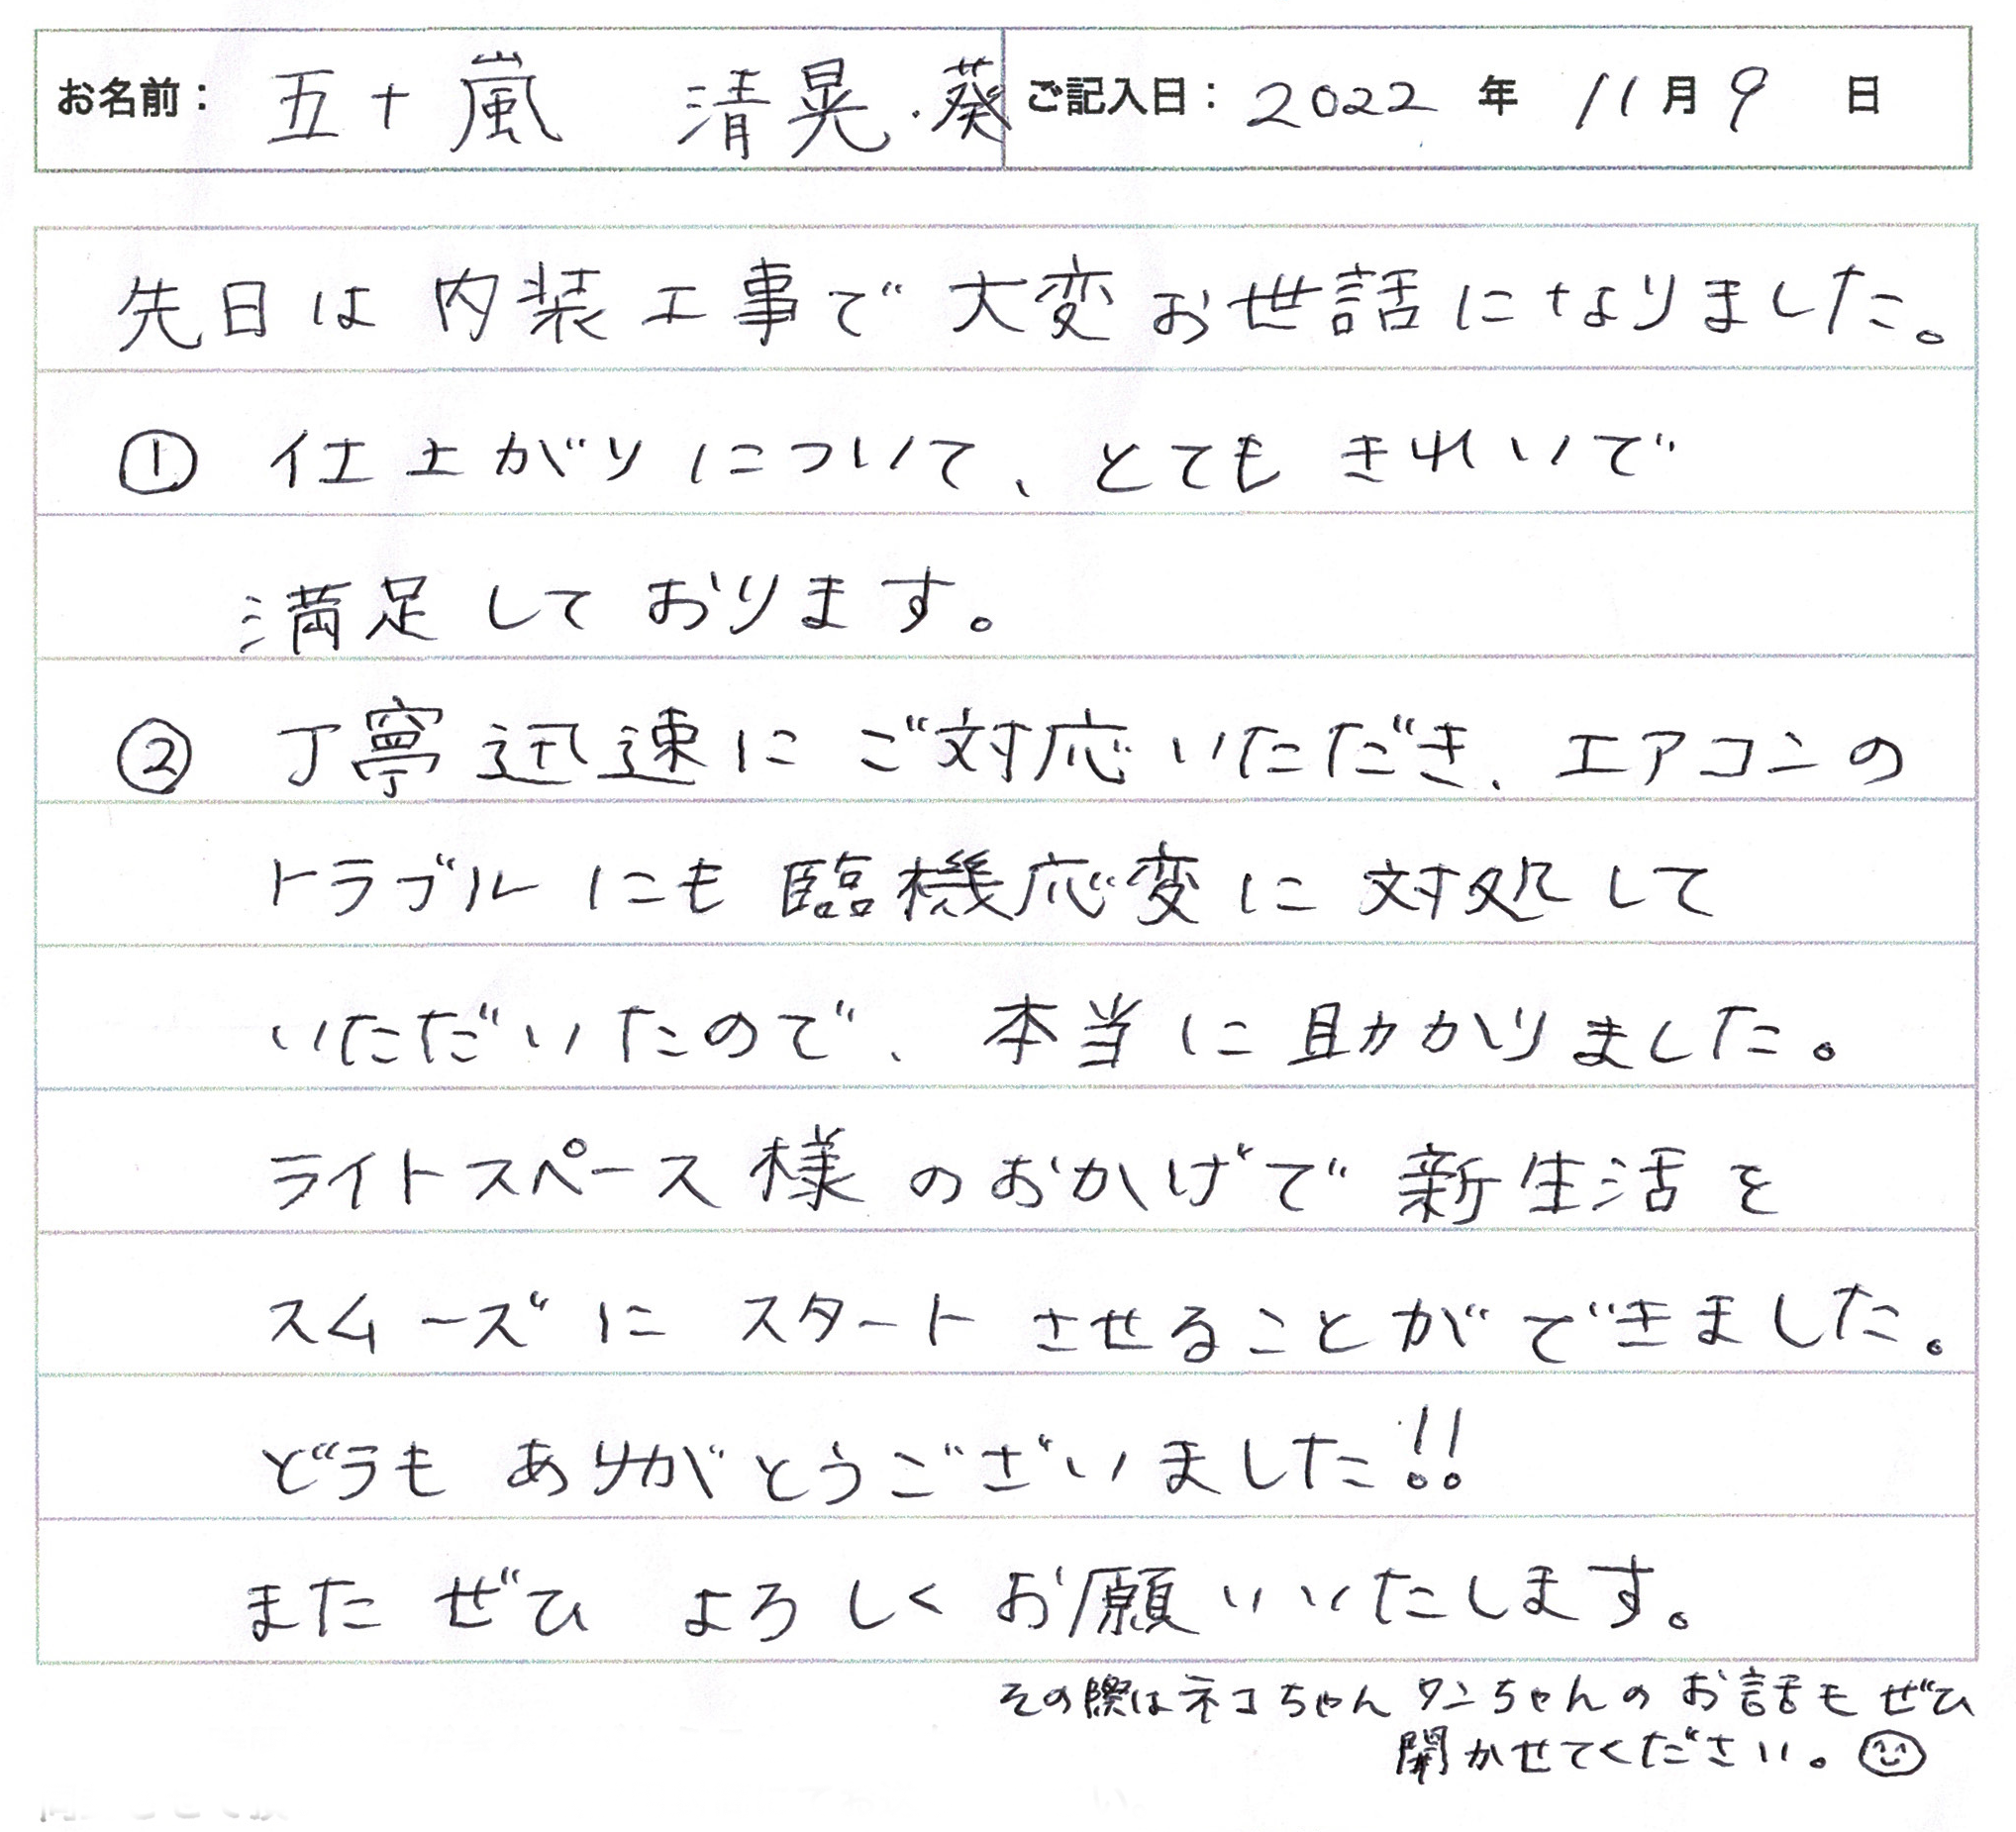 お名前： 五十嵐 清晃・葵 ご記入日： 2022 年 11 月 9 日
先日は内装工事で大変お世話になりました。
① 仕上がりについて、とてもきれいで
満足しております。
② 丁寧迅速にご対応いただき、エアコンの
トラブルにも臨機応変に対処して
いただいたので、本当に助かりました。
ライトスペース様のおかげで新生活を
スムーズにスタートさせることができました。
どうもありがとうございました!!
またぜひよろしくお願いいたします。
その際はネコちゃんワンちゃんのお話もぜひ
聞かせてください。